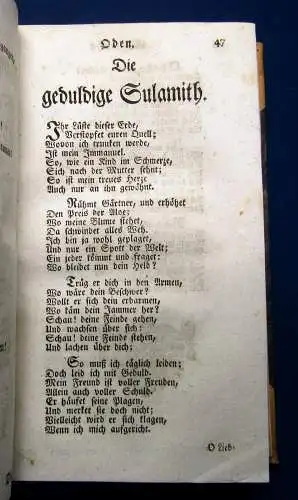 Oden. 47
Die
geduldige Sulamith.
Ihr Lüste dieser Erde,
Verstopfet euren Quell;
Wovon ich trunken werde,
Ist mein Immanuel.
So, wie ein Kind im Schmerze,
Sich nach der Mutter sehnt;
So ist mein treues Herze
Auch nur an ihn gewöhnt.
Rühmt Gärtner, und erhöhet
Den Preis der Aloe;
Wo meine Blume stehet,
Da schwindet alles Weh.
Ich bin ja wohl geplaget,
Und nur ein Spott der Welt;
Ein jeder kömmt und fraget:
Wo bleibet nun dein Held?
Trüg er dich in den Armen,
Wo wäre dein Beschwer?
Wollt er sich dein erbarmen,
Wo käm dein Jammer her?
Schau! deine Feinde gehen,
Und wachsen über sich:
Schau! deine Feinde stehen,
Und lachen über dich;
So muß ich täglich leiden;
Doch leid ich mit Geduld.
Mein Freund ist voller Freuden,
Allein auch voller Schuld.
Er häufet seine Plagen,
Und merket sie doch nicht;
Vielleicht wird er sich klagen,
Wenn ich mich aufgericht.
O Lieb-